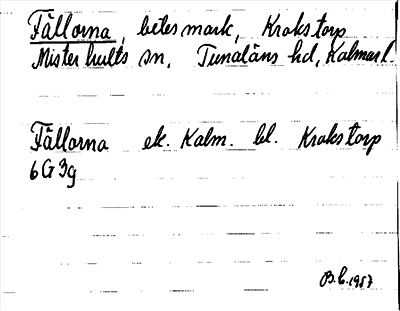 Fällorna, betesmark, Krokstorp
Misterhults sn, Tunaläns hd, Kalmar l.
Fällorna ek. Kalm. bl. Krokstorp
6G 3g
B.C. 1957